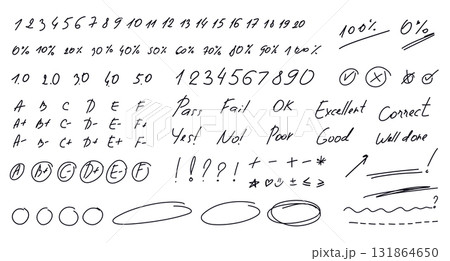 1 2 3 4 5 6 7 8 9 10 11 12 13 14 15 16 17 18 19 20
100% 0%
0% 10% 20% 30% 40% 50% 60% 70% 80% 90% 100%
1.0 2.0 3.0 4.0 5.0 1 2 3 4 5 6 7 8 9 0
A B C D E F Pass Fail OK Excellent Correct
A+ B+ C- D- E+ F-
A- B- C+ D+ E+ F+ Yes! No! Poor Good Well done
A B+ C- D+ E- F ! ! ? ? ! + - + - *
± ≤ ≥
!
?
PIXTA
pixta.jp - 131864650